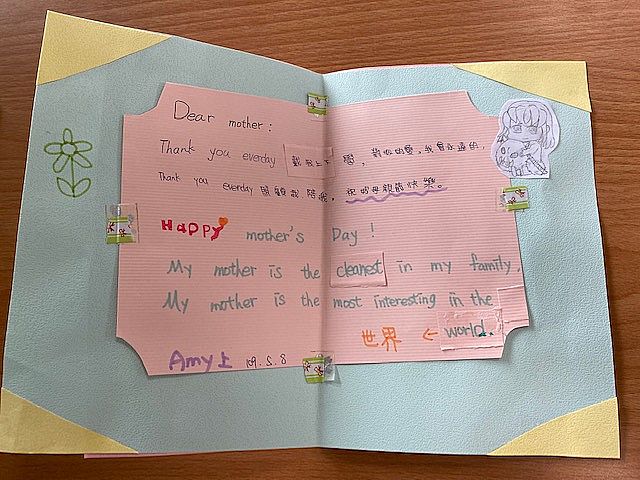 Dear mother :
Thank you everday 載我上下學, 對你的愛, 我會永遠的.
Thank you everday 照顧我 陪我. 祝妳母親節快樂。
Happy mother's Day !
My mother is the cleanest in my family.
My mother is the most interesting in the
世界 ← world.
Amy上 109.5.8